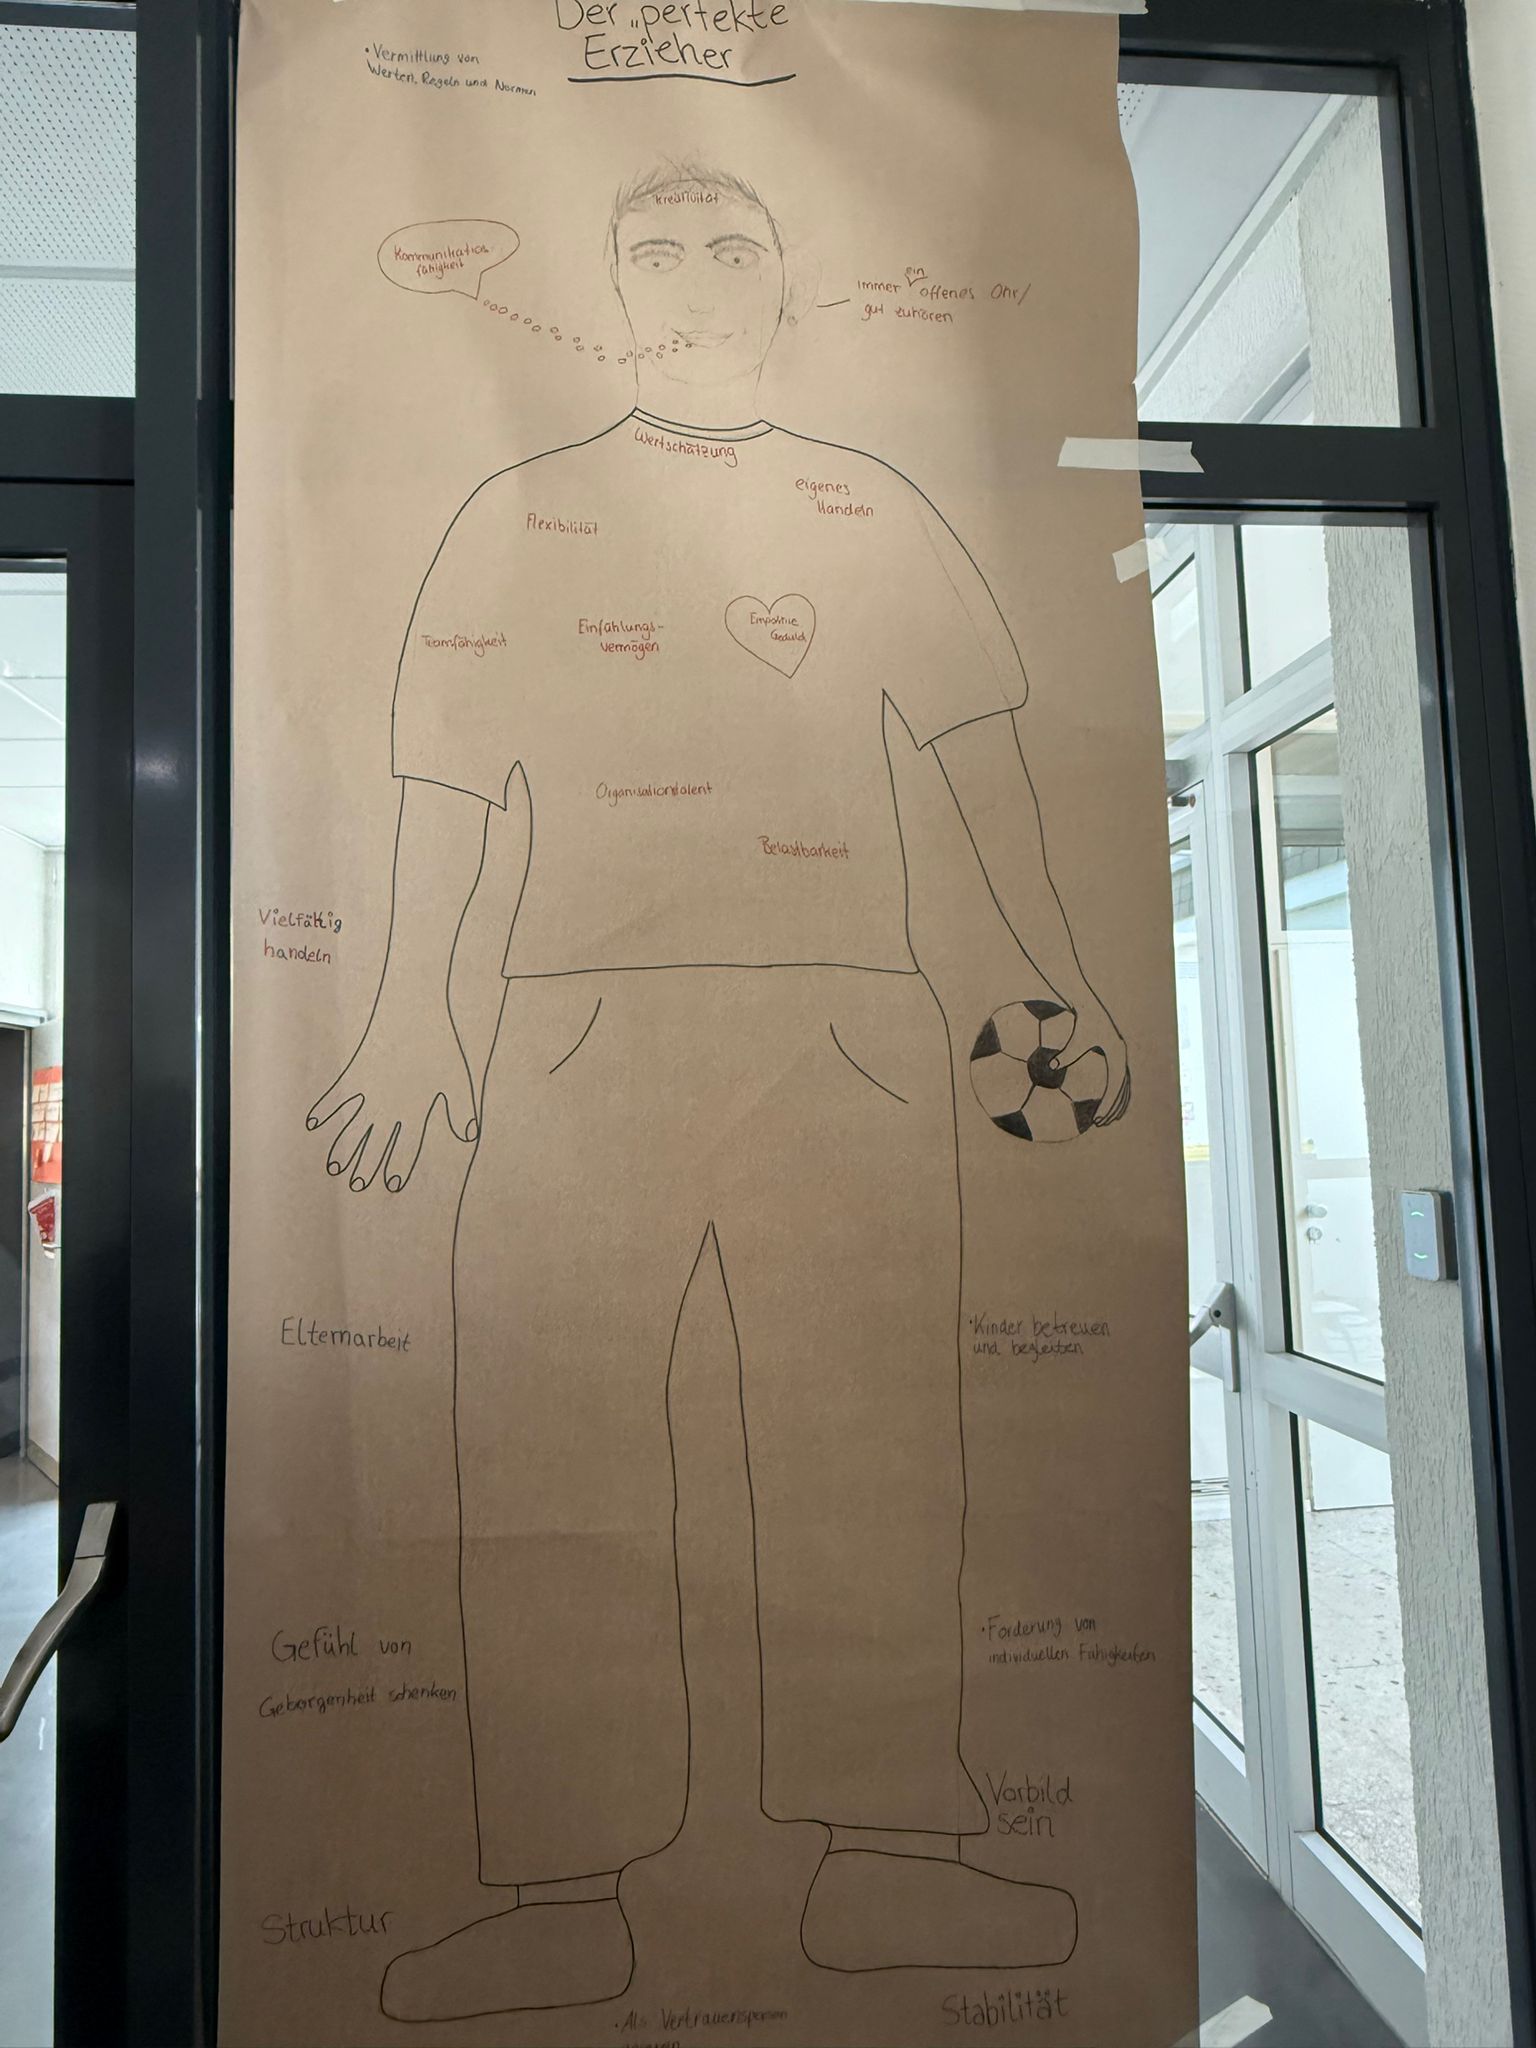 Der „perfekte
Erzieher
• Vermittlung von
Werten, Regeln und Normen
Kreativität
Kommunikations-
fähigkeit
immer ein offenes Ohr/
gut zuhören
Wertschätzung
eigenes
Handeln
Flexibilität
Teamfähigkeit
Einfühlungs-
vermögen
Empathie
Geduld
Organisationstalent
Belastbarkeit
Vielfältig
handeln
Elternarbeit
• Kinder betreuen
und begleiten
Gefühl von
Geborgenheit schenken
• Förderung von
individuellen Fähigkeiten
Vorbild
sein
Struktur
Stabilität
• Als Vertrauensperson